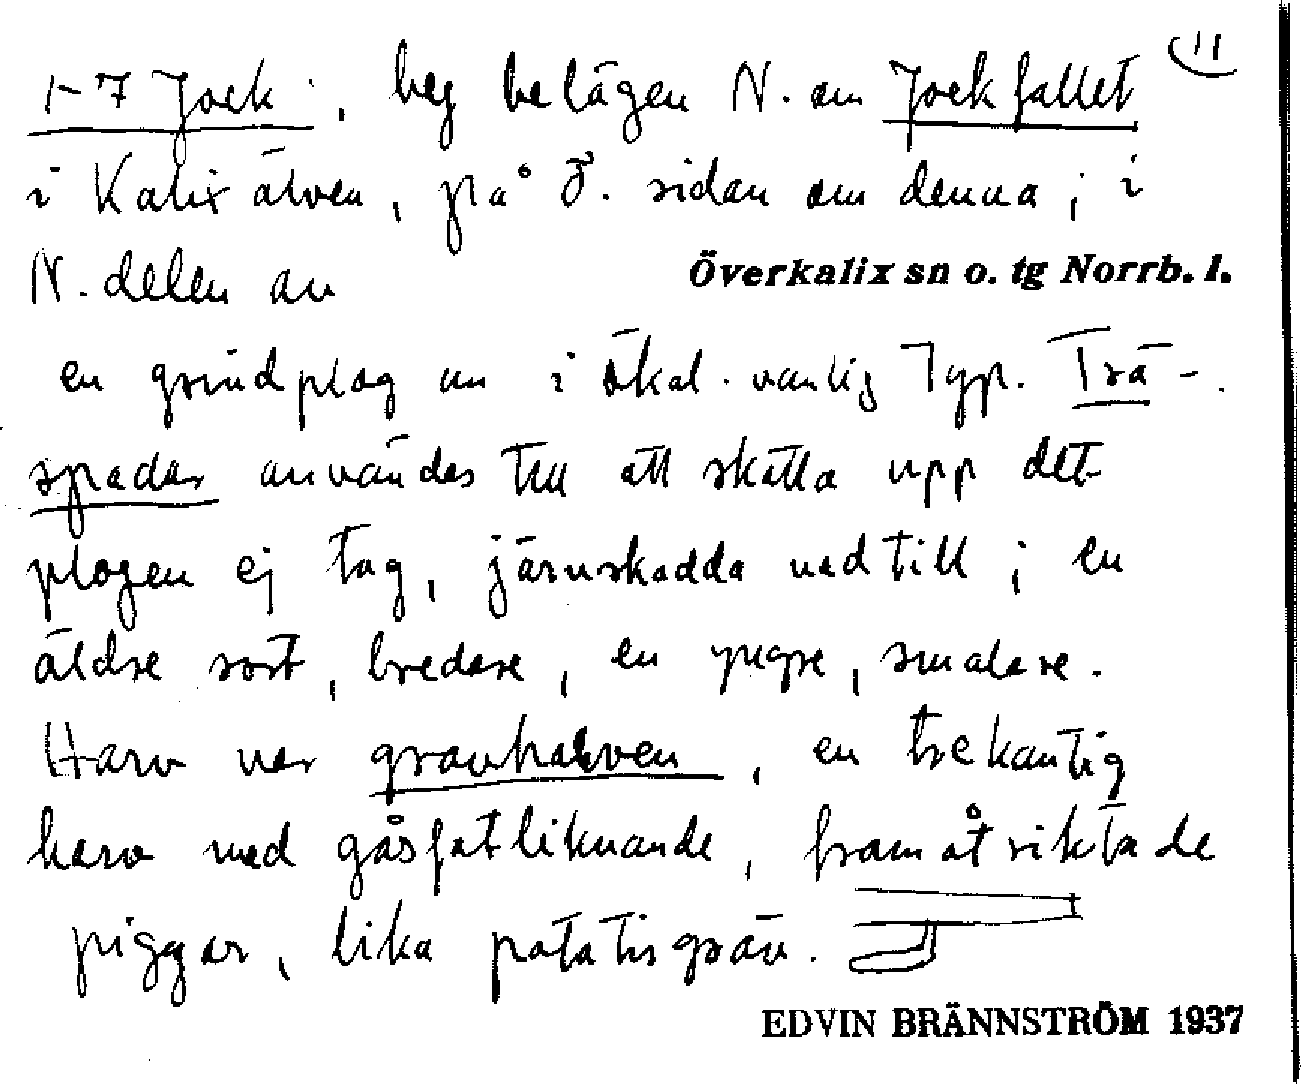 11
1-7 Jock, beg belägen N. om Jockfallet
i Kalix älven, på Ö. sidan om denna; i
N. delen av
Överkalix sn o. tg Norrb. l.
en grindplog av i ökal. vanlig typ. Trä-
spadar användes till att skotta upp det
plogen ej tag, järnskodda nedtill; en
äldre sort, bredare, en yngre, smalare.
Harv var gravharven, en trekantig
harv med gåsfotliknande, framåtriktade
piggar, lika potatisgräv.
EDVIN BRÄNNSTRÖM 1937